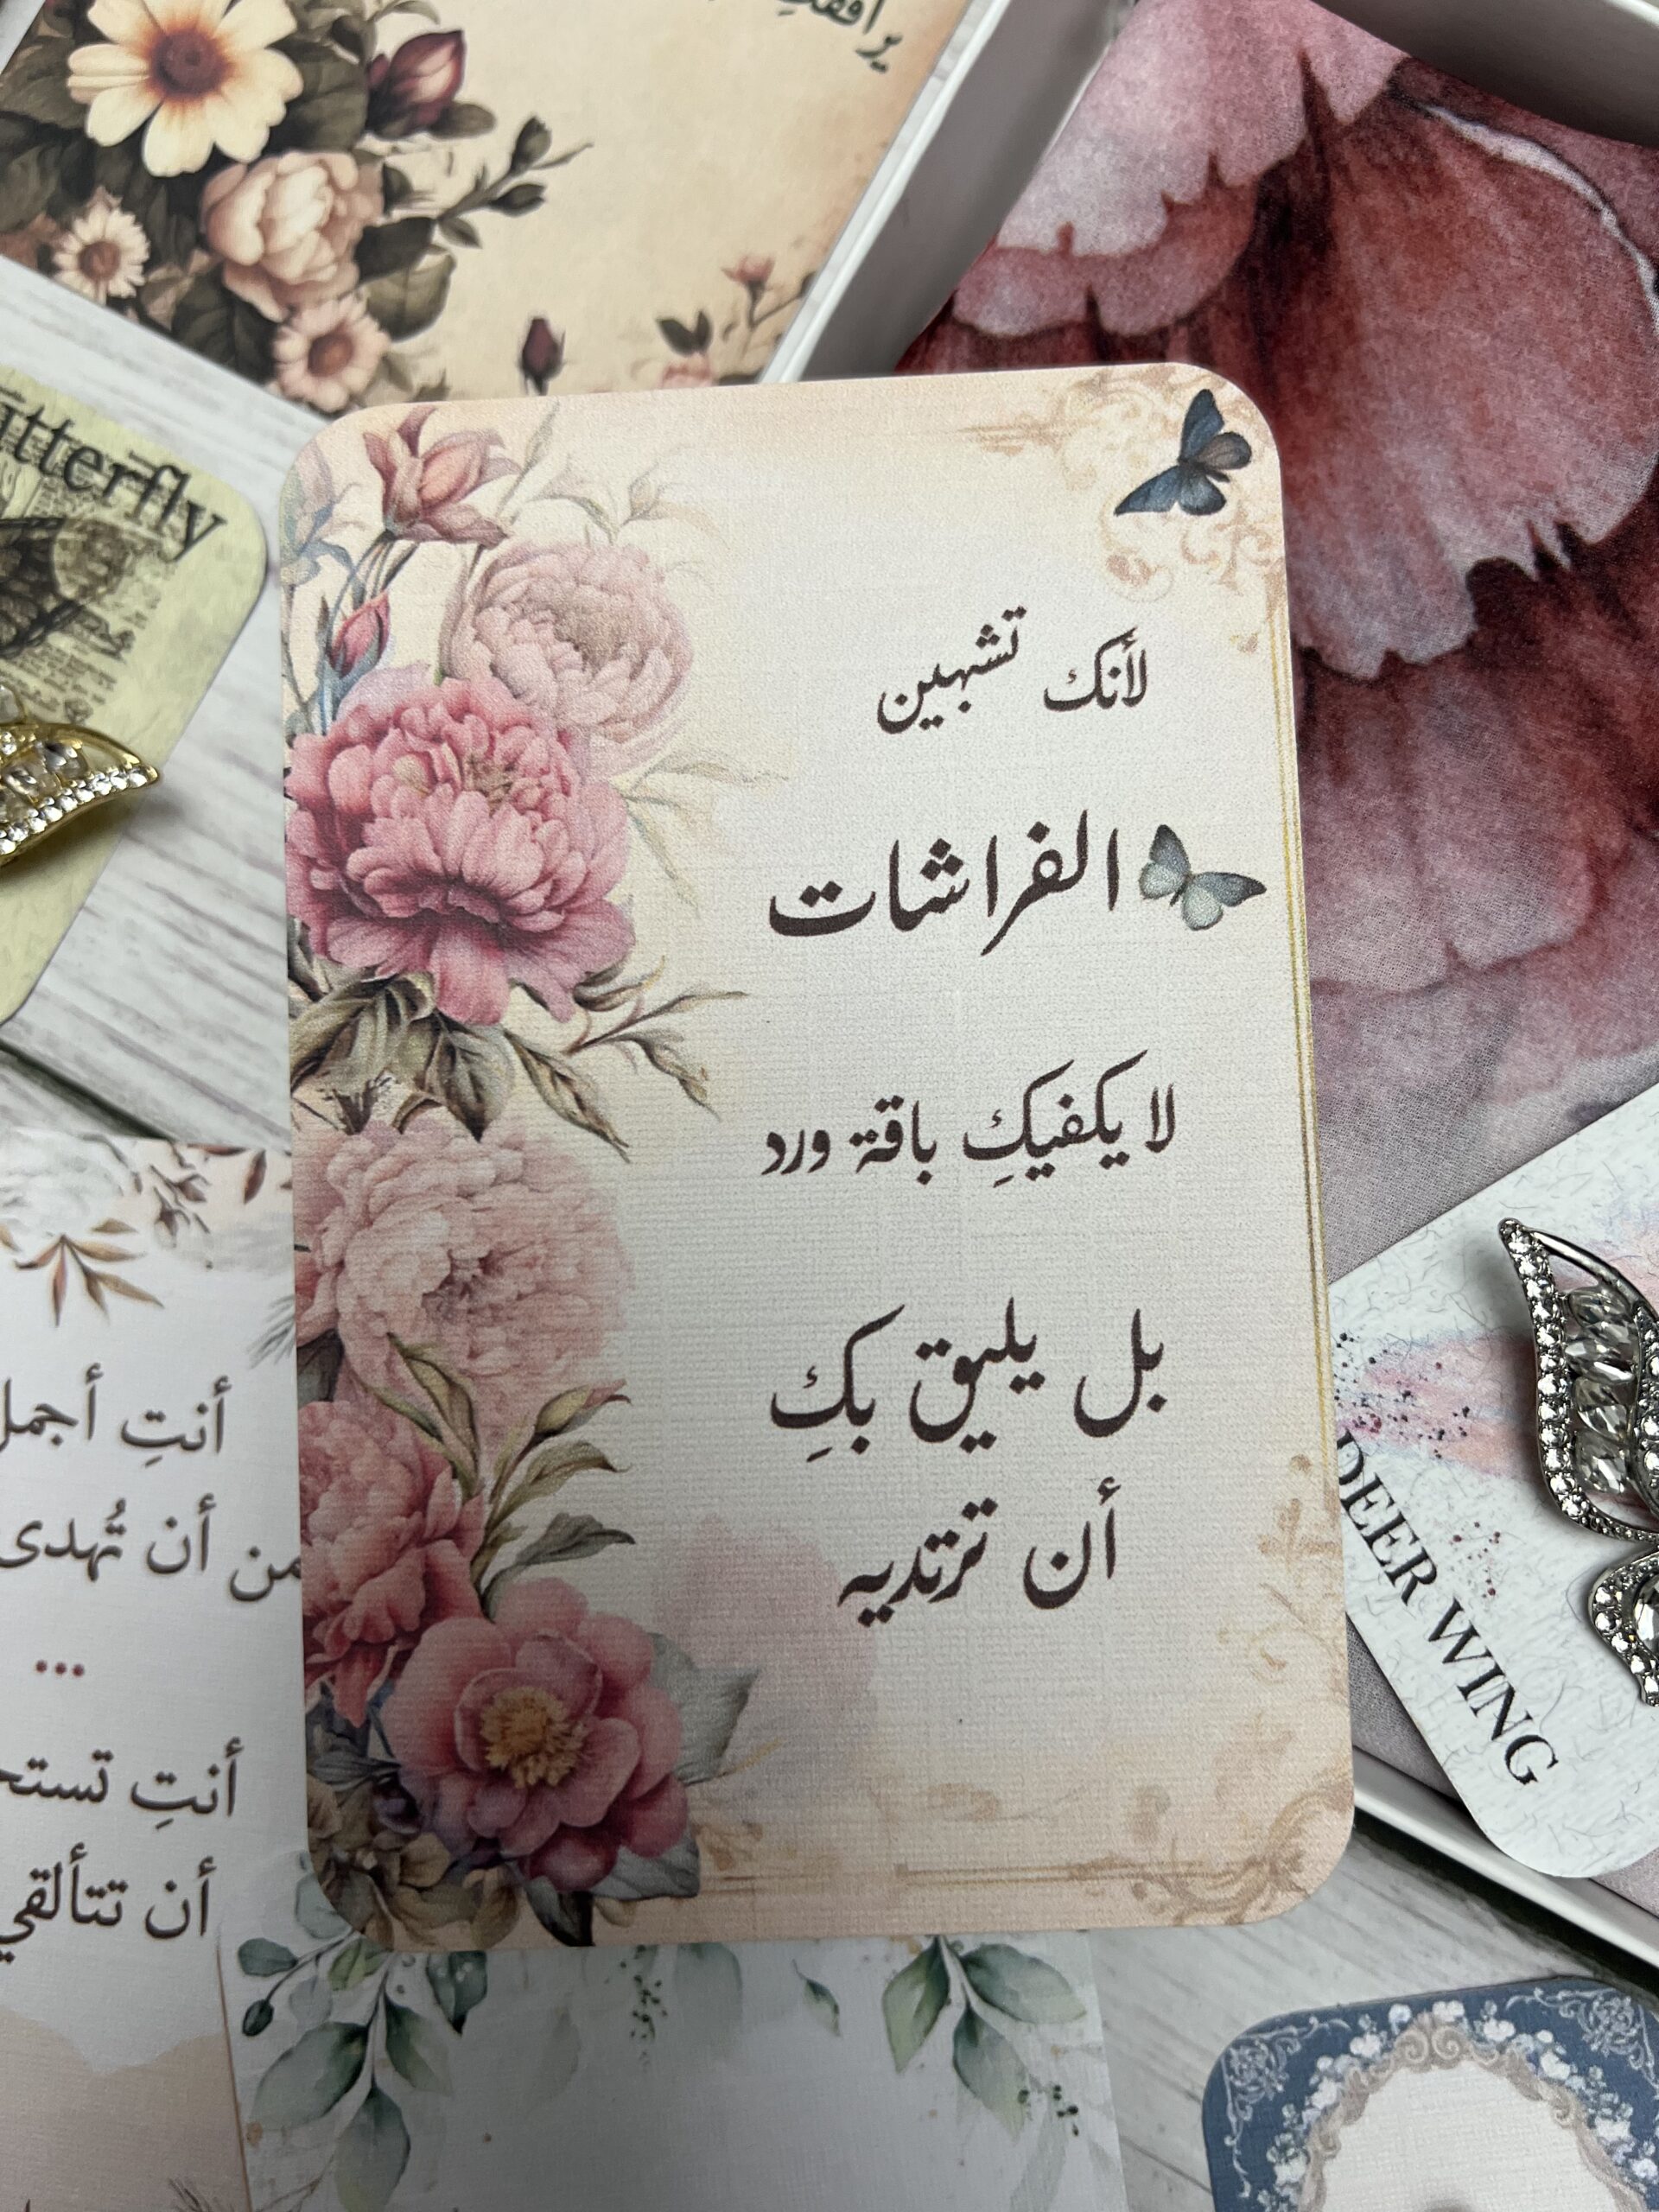 لأنك تشبهين
الفراشات
لا يكفيكِ باقة ورد
بل يليق بكِ
أن ترتديه
أنتِ أجمل
من أن تُهدى
...
أنتِ
أن تتألقي
DEER WING